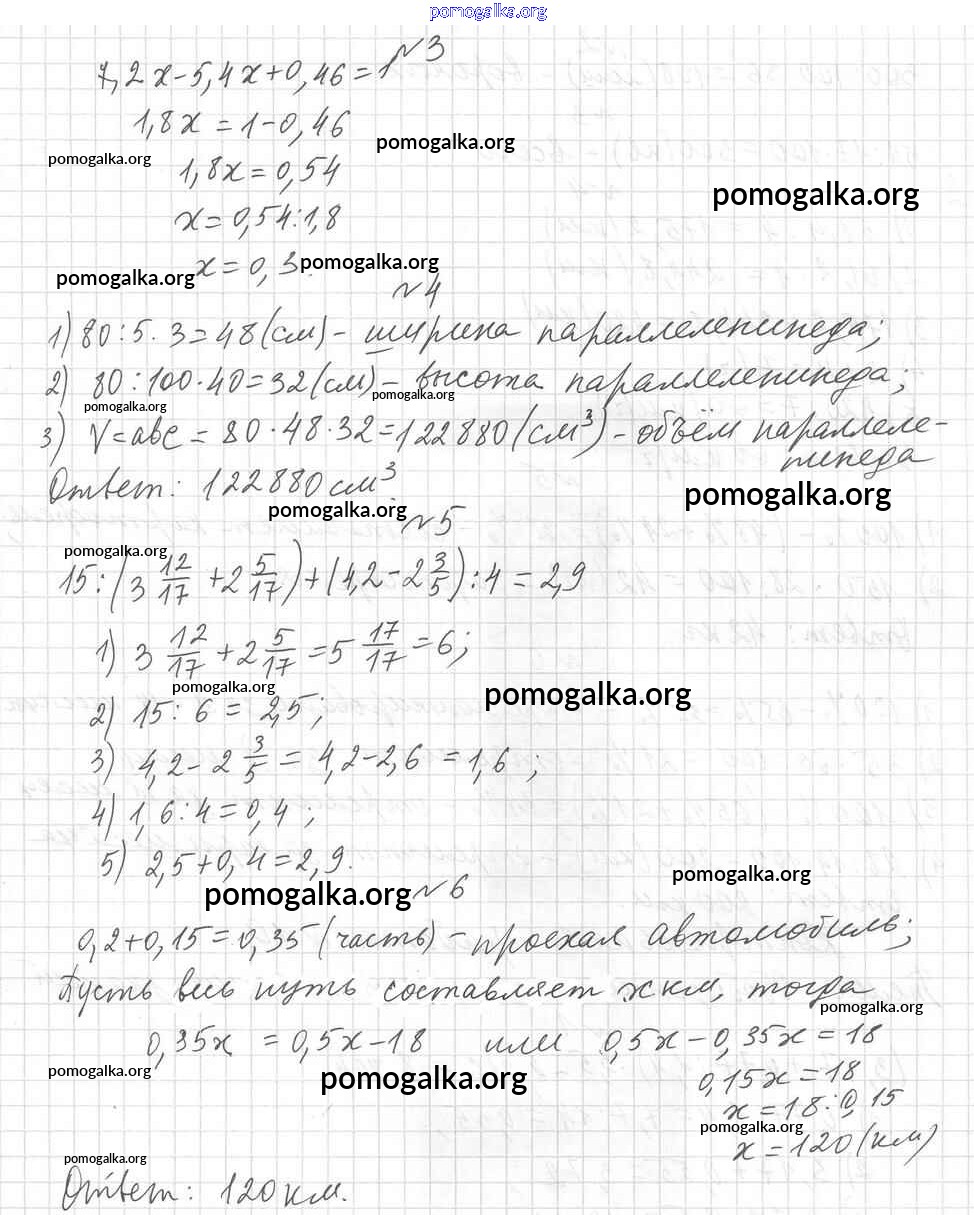 pomogalka.org
№3
7,2x-5,4x+0,46=1
1,8x=1-0,46
pomogalka.org
pomogalka.org
1,8x=0,54
pomogalka.org
x=0,54:1,8
x=0,3.
pomogalka.org
pomogalka.org
№4
1) 80:5·3=48(см)-ширина параллелепипеда;
2) 80:100·40=32(см)-высота параллелепипеда;
pomogalka.org
pomogalka.org
3) V=abc=80·48·32=122880(см³)-объём параллеле-
пипеда
Ответ: 122880 см³.
pomogalka.org
pomogalka.org
№5
pomogalka.org
15:(3 12/17+2 5/17)+(4,2-2 3/5):4=2,9
1) 3 12/17+2 5/17=5 17/17=6;
pomogalka.org
pomogalka.org
2) 15:6=2,5;
3) 4,2-2 3/5=4,2-2,6=1,6;
4) 1,6:4=0,4;
5) 2,5+0,4=2,9.
pomogalka.org
pomogalka.org
№6
0,2+0,15=0,35(часть)-проехал автомобиль;
Пусть весь путь составляет x км, тогда
pomogalka.org
0,35x=0,5x-18 или 0,5x-0,35x=18
pomogalka.org
pomogalka.org
0,15x=18
x=18:0,15
pomogalka.org
x=120(км)
pomogalka.org
Ответ: 120 км.